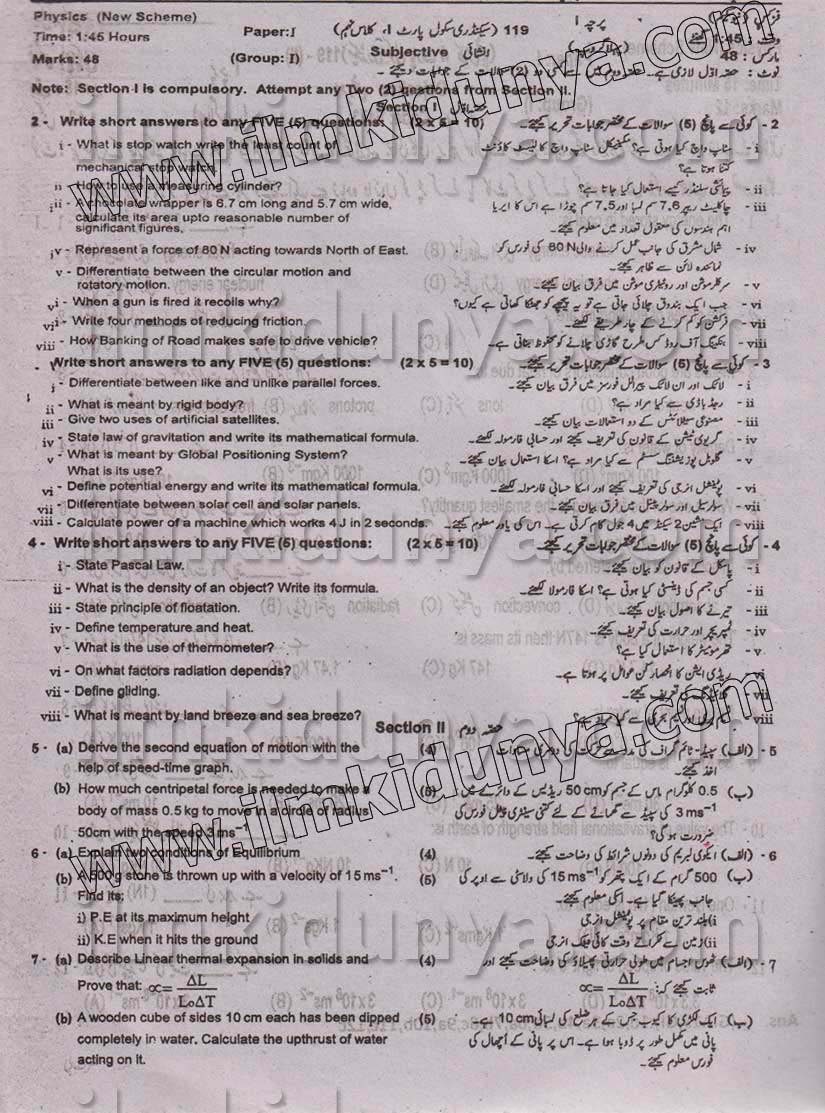 Physics (New Scheme)
Paper:I
119 (سیکنڈری سکول پارٹ ا، کلاس نہم)
پرچہ I
Time: 1:45 Hours
وقت : 1:45 گھنٹے
Marks: 48
(Group: I)
Subjective انشائیہ
مارکس : 48
Note: Section I is compulsory. Attempt any Two (2) qestions from Section II.
Section I حصہ اول
2 - Write short answers to any FIVE (5) questions: (2 x 5 = 10)
2 - کوئی سے پانچ (5) سوالات کے مختصر جوابات تحریر کیجئے۔
i - What is stop watch write the least count of
mechanical stop watch.
i - سٹاپ واچ کیا ہوتی ہے؟ مکینیکل سٹاپ واچ کا لیسٹ کاؤنٹ
کتنا ہوتا ہے؟
ii - How to use a measuring cylinder?
ii - پیمائشی سلنڈر کیسے استعمال کیا جاتا ہے؟
iii - A chocolate wrapper is 6.7 cm long and 5.7 cm wide,
calculate its area upto reasonable number of
significant figures.
iii - چاکلیٹ ریپر 7.6 سم لمبا اور 7.5 سم چوڑا ہے اس کا ایریا
اہم ہندسوں کی معقول تعداد میں معلوم کیجئے۔
iv - Represent a force of 80 N acting towards North of East.
iv - شمال مشرق کی جانب عمل کرنے والی 80 N کی فورس کو
نمائندہ لائن سے ظاہر کیجئے۔
v - Differentiate between the circular motion and
rotatory motion.
v - سرکلر موشن اور روٹیٹری موشن میں فرق بیان کیجئے۔
vi - When a gun is fired it recoils why?
vi - جب ایک بندوق چلائی جاتی ہے تو یہ پیچھے کو جھٹکا کھاتی ہے کیوں؟
vii - Write four methods of reducing friction.
vii - فرکشن کو کم کرنے کے چار طریقے لکھئے۔
viii - How Banking of Road makes safe to drive vehicle?
viii - بینکنگ آف روڈ کس طرح گاڑی چلانے کو محفوظ بناتی ہے۔
Write short answers to any FIVE (5) questions: (2 x 5 = 10)
3 - کوئی سے پانچ (5) سوالات کے مختصر جوابات تحریر کیجئے۔
i - Differentiate between like and unlike parallel forces.
i - لائک اور ان لائک پیرالل فورسز میں فرق بیان کیجئے۔
ii - What is meant by rigid body?
ii - رجڈ باڈی سے کیا مراد ہے؟
iii - Give two uses of artificial satellites.
iii - مصنوعی سیٹلائٹس کے دو استعمالات بیان کیجئے۔
iv - State law of gravitation and write its mathematical formula.
iv - گریوی ٹیشن کے قانون کی تعریف کیجئے اور حسابی فارمولہ لکھئے۔
v - What is meant by Global Positioning System?
What is its use?
v - گلوبل پوزیشننگ سسٹم سے کیا مراد ہے؟ اسکا استعمال بیان کیجئے۔
vi - Define potential energy and write its mathematical formula.
vi - پوٹینشل انرجی کی تعریف کیجئے اور اسکا حسابی فارمولہ لکھئے۔
vii - Differentiate between solar cell and solar panels.
vii - سولر سیل اور سولر پینل میں فرق بیان کیجئے۔
viii - Calculate power of a machine which works 4 J in 2 seconds.
viii - ایک مشین 2 سیکنڈ میں 4 جول کام کرتی ہے۔ اس کی پاور معلوم کیجئے۔
4 - Write short answers to any FIVE (5) questions: (2 x 5 = 10)
4 - کوئی سے پانچ (5) سوالات کے مختصر جوابات تحریر کیجئے۔
i - State Pascal Law.
i - پاسکل کے قانون کو بیان کیجئے۔
ii - What is the density of an object? Write its formula.
ii - کسی جسم کی ڈینسٹی کیا ہوتی ہے؟ اسکا فارمولا لکھئے۔
iii - State principle of floatation.
iii - تیرنے کا اصول بیان کیجئے۔
iv - Define temperature and heat.
iv - ٹمپریچر اور حرارت کی تعریف کیجئے۔
v - What is the use of thermometer?
v - تھرمومیٹر کا استعمال کیا ہے؟
vi - On what factors radiation depends?
vi - ریڈی ایشن کا انحصار کن عوامل پر ہوتا ہے۔
vii - Define gliding.
vii - گلائیڈنگ کی تعریف کیجئے۔
viii - What is meant by land breeze and sea breeze?
viii - نسیم بری اور نسیم بحری سے کیا مراد ہے؟
Section II حصہ دوم
5 - (a) Derive the second equation of motion with the (4)
help of speed-time graph.
5 - (الف) سپیڈ- ٹائم گراف کی مدد سے حرکت کی دوسری مساوات
اخذ کیجئے۔
(b) How much centripetal force is needed to make a (5)
body of mass 0.5 kg to move in a circle of radius
50cm with the speed 3 ms⁻¹
(ب) 0.5 کلوگرام ماس کے جسم کو 50 cm ریڈیس کے دائرے میں
3 ms⁻¹ کی سپیڈ سے گھمانے کے لئے کتنی سینٹری پیٹل فورس کی
ضرورت ہوگی؟
6 - (a) Explain two conditions of Equilibrium (4)
6 - (الف) ایکوی لبریم کی دونوں شرائط کی وضاحت کیجئے۔
(b) A 500 g stone is thrown up with a velocity of 15 ms⁻¹. (5)
Find its;
i) P.E at its maximum height
ii) K.E when it hits the ground
(ب) 500 گرام کے ایک پتھر کو 15 ms⁻¹ کی ولاسٹی سے اوپر کی
جانب پھینکا گیا ہے۔ اسکی معلوم کیجئے۔
i) بلند ترین مقام پر پوٹینشل انرجی
ii) زمین سے ٹکراتے وقت کائی نیٹک انرجی
7 - (a) Describe Linear thermal expansion in solids and (4)
Prove that: ∝= ΔL / LoΔT
7 - (الف) ٹھوس اجسام میں طولی حرارتی پھیلاؤ کی وضاحت کیجئے اور
ثابت کیجئے کہ: ∝= ΔL / LoΔT
(b) A wooden cube of sides 10 cm each has been dipped (5)
completely in water. Calculate the upthrust of water
acting on it.
(ب) ایک لکڑی کا کیوب جس کے ہر ضلع کی لمبائی 10 cm ہے۔
پانی میں مکمل طور پر ڈوبا ہوا ہے۔ اس پر پانی کے اُچھال کی
فورس معلوم کیجئے۔
www.ilmkidunya.com
www.ilmkidunya.com